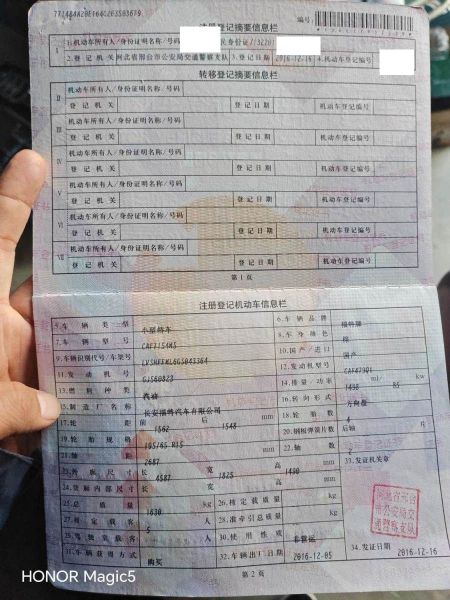 注册登记摘要信息栏
编号:
1.机动车所有人/身份证明名称/号码
2.登记机关 河北省邢台市公安局交通警察支队 3.登记日期 2016-12-16 4.机动车登记编号
转移登记摘要信息栏
II 机动车所有人/身份证明名称/号码
登记机关 登记日期 机动车登记编号
III 机动车所有人/身份证明名称/号码
登记机关 登记日期 机动车登记编号
IV 机动车所有人/身份证明名称/号码
登记机关 登记日期 机动车登记编号
V 机动车所有人/身份证明名称/号码
登记机关 登记日期 机动车登记编号
VI 机动车所有人/身份证明名称/号码
登记机关 登记日期 机动车登记编号
VII 机动车所有人/身份证明名称/号码
登记机关 登记日期 机动车登记编号
第1页
注册登记机动车信息栏
5.车辆类型 小型轿车 6.车辆品牌 福特牌
7.车辆型号 8.车身颜色 棕
9.车辆识别代号/车架号 10.国产/进口 国产
11.发动机号 GJ560823 12.发动机型号
13.燃料种类 汽油 14.排量/功率 1498 ml/ 85 kw
15.制造厂名称 长安福特汽车有限公司 16.转向形式 方向盘
17.轮距 前 1562 后 1548 mm 18.轮胎数 4
19.轮胎规格 195/65 R15 20.钢板弹簧片数 后轴 片
21.轴距 2687 mm 22.轴数 2
23.外廓尺寸 长 4587 宽 1825 高 1490 mm 33.发证机关章
24.货厢内部尺寸 长 宽 高 mm
25.总质量 1630 kg 26.核定载质量 kg
27.核定载客 5 人 28.准牵引总质量 kg
29.驾驶室载客 人 30.使用性质 非营运
31.车辆获得方式 购买 32.车辆出厂日期 2016-12-05 34.发证日期 2016-12-16
河北省邢台
市公安局交
通警察支队
第2页
HONOR Magic5